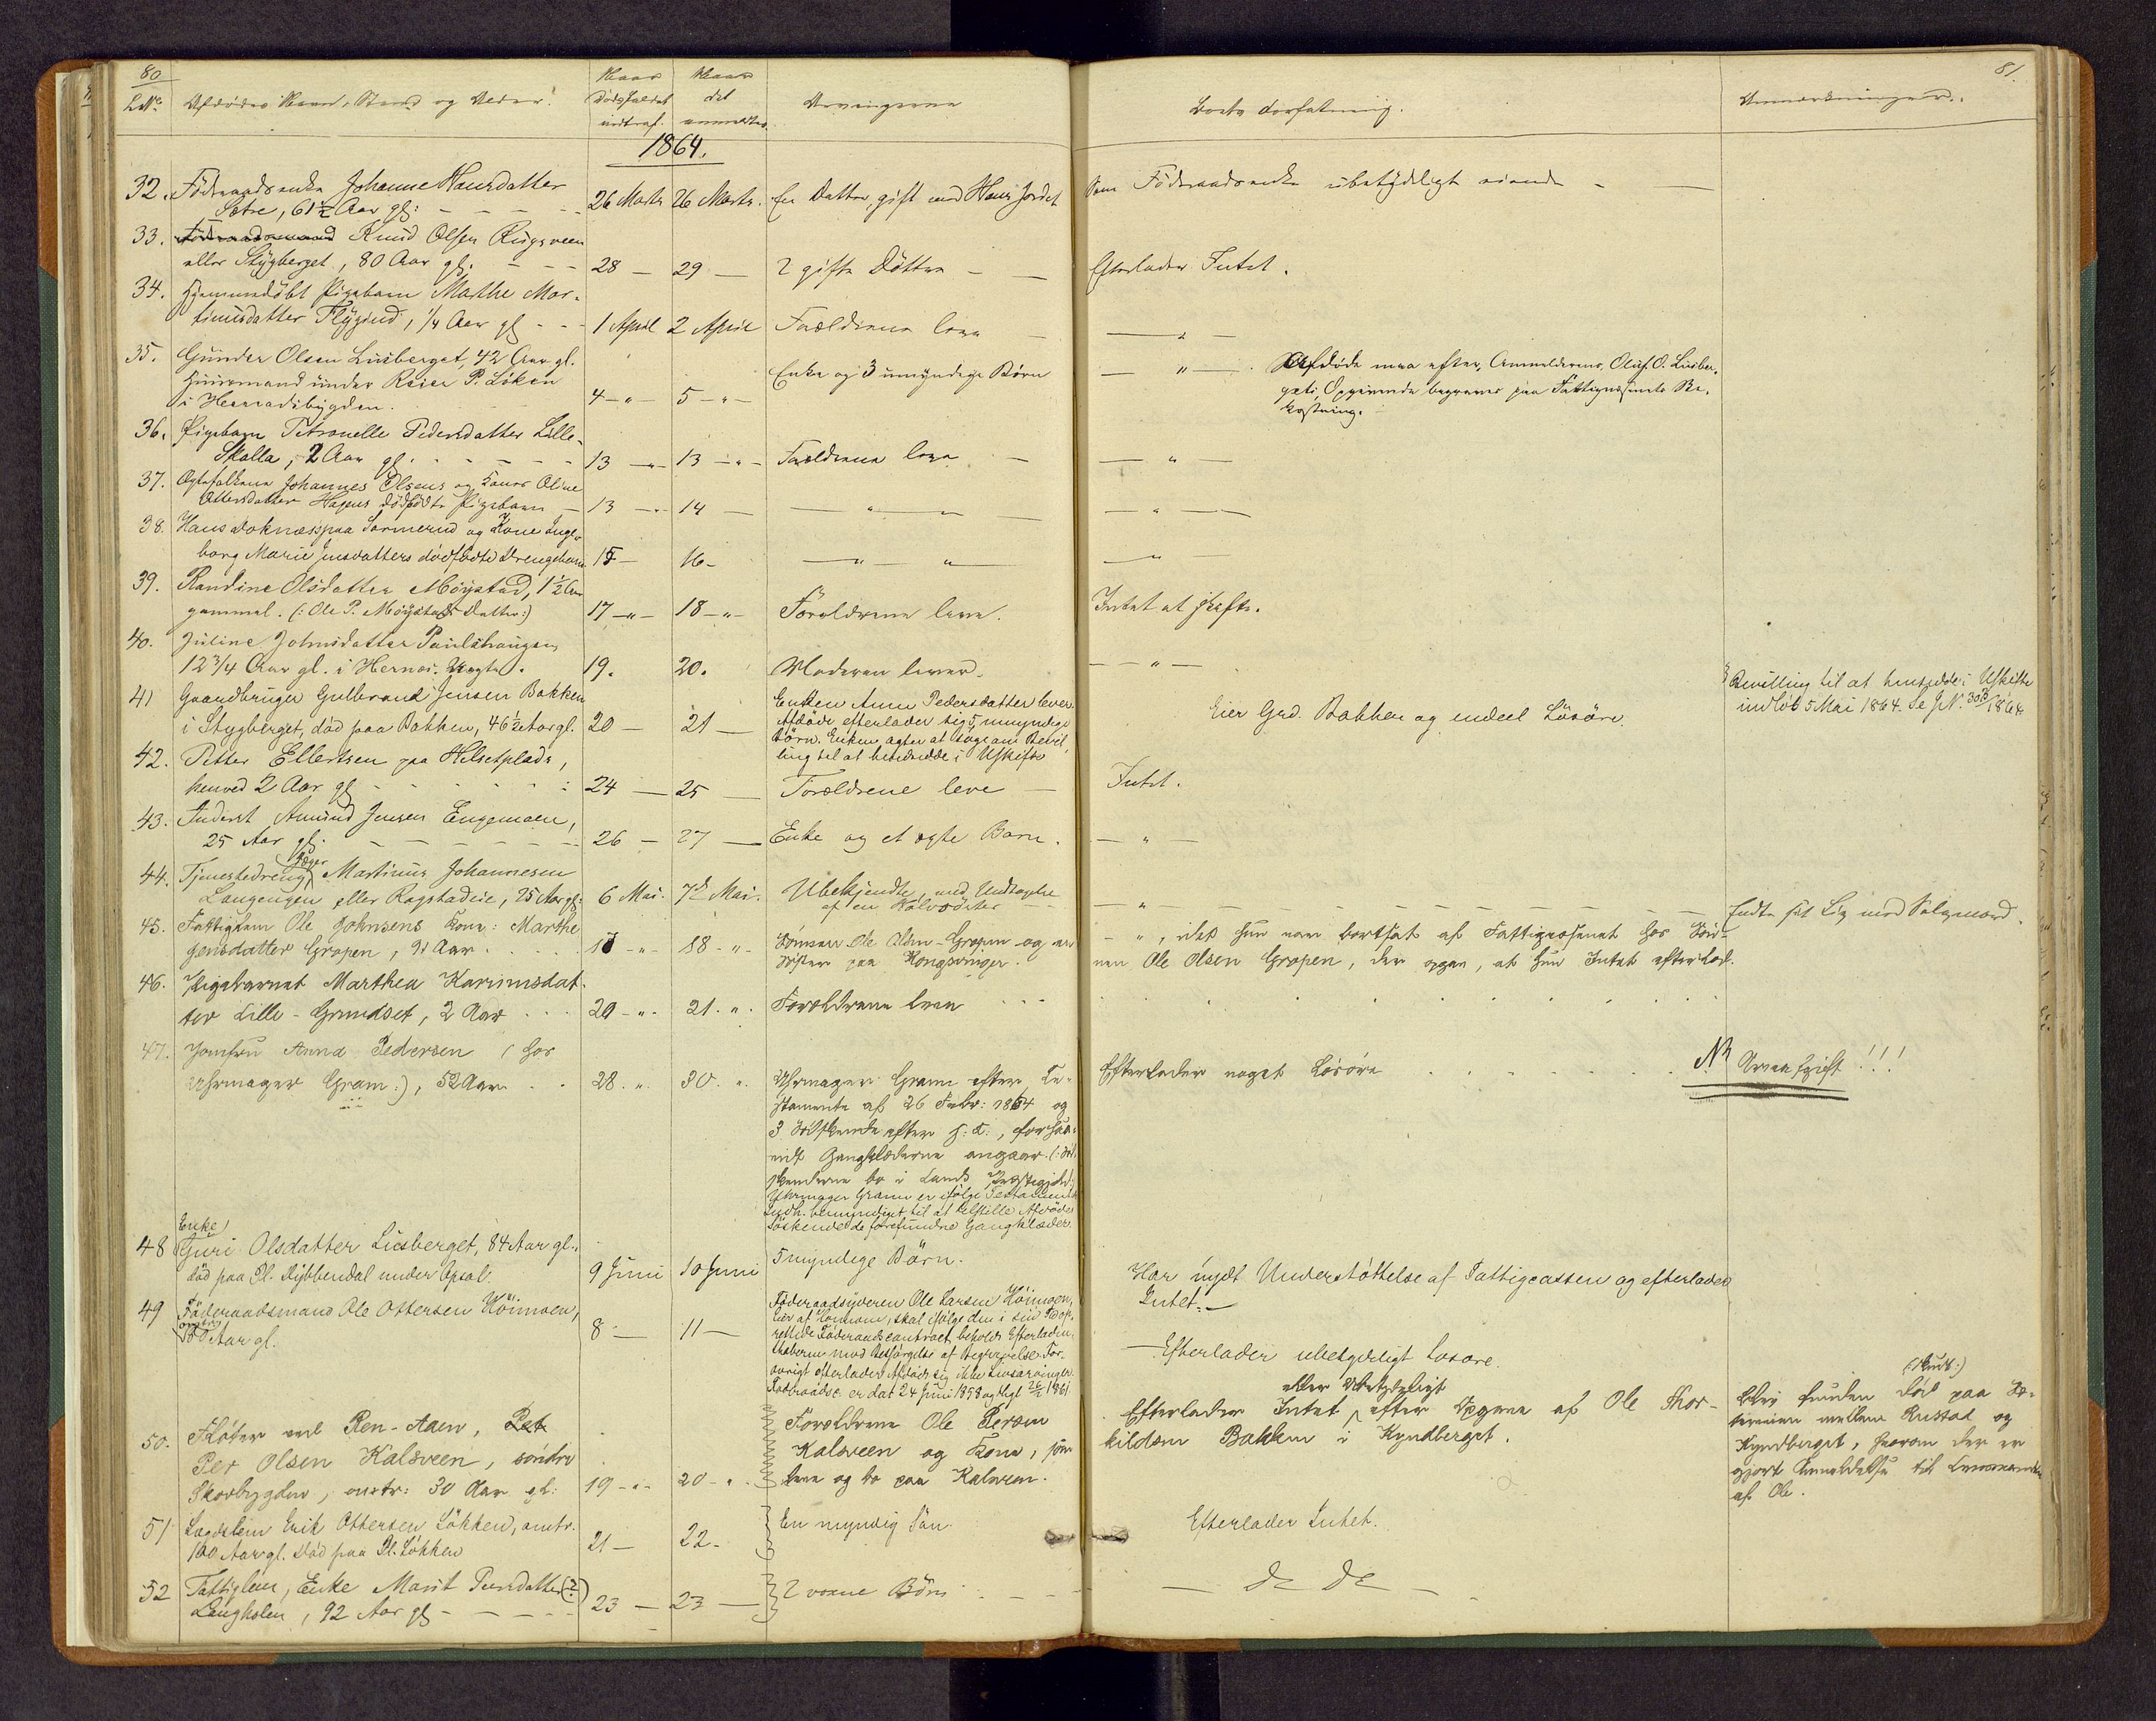 80
81.
LNo. Afdödes Navn, Stand og Alder.
Naar Dödsfaldet indtraf.
Naar det anmeldtes.
Arvingerne
Boets Forfatning.
Anmærkninger.
1864.
32. Föderaadsenke Johanne Hansdatter
Sætre, 61 1/2 Aar gl: 26 Marts 26 Marts. En Datter, gift med Hans Jordet
Som Föderaadsenke ubetydeligt eiende
33. Föderaadsmand Knud Olsen Rugsveen
eller Stygberget, 80 Aar gl. 28 — 29 — 2 gifte Döttre
Efterlader Intet.
34. Hjemmedöbt Pigebarn Marthe Mar-
tinusdatter Flygind, 1/4 Aar gl 1 April 2 April Forældrene leve
— " —
35. Gunder Olsen Lusberget, 42 Aar gl.
Huusmand under Reier P. Löken
i Hernadsbygden. 4 — " — 5 — " — Enke og 3 umyndige Börn
— " — Afdöde maa efter Anmelderens, Oluf O. Lusber-
gets, Opgivende begraves paa Fattigvæsenets Be-
kostning.
36. Pigebarn Petronelle Pedersdatter Lille-
Skalla, 2 Aar gl. 13 — " — 13 — " — Forældrene leve
— " —
37. Ægtefolkene Johannes Olsens og Kones Oline
Ottersdatter Hagens dödfödte Pigebarn 13 — " — 14 —
— " —
38. Hans Doknæs paa Sormerud og Kone Inge-
borg Marie Jensdatters dödfödte Drengebarn 15 — 16 —
— " —
39. Randine Olsdatter Möystad, 1 1/2 Aar
gammel. (: Ole P. Möystads Datter:) 17 — " — 18 — " — Forældrene leve.
Intet at skifte.
40. Juline Johnsdatter Paulshaugen,
12 3/4 Aar gl. i Hernæs. Ægte. 19. 20. Moderen lever.
— " —
41 Gaardbruger Gulbrand Jensen Bakken
i Stygberget, död paa Bakken, 46 1/2 Aar gl. 20 — 21 —
Enken Anne Pedersdatter lever.
Afdöde efterlader sig 5 umyndige
Börn. Enken agter at söge om Bevil-
ling til at hensidde i Uskifte
Eier Grd. Bakken og endeel Lösöre.
Bevilling til at hensidde i Uskifte
indlöb 5 Mai 1864. Se JN. 303/1864
42. Petter Ellertsen paa Helsetplads,
henved 2 Aar gl 24 — 25 Forældrene leve
Intet.
43. Inderst Amund Jensen Engemoen,
25 Aar gl. 26 — 27 — Enke og et ægte Barn.
— " —
44. Tjenestedreng Martinus Johannesen
Langengen eller Rogstadeie, 25 Aar gl: 6 Mai. 7de Mai. Ubekjendte, med Undtagelse
af en Halvsöster
— " —
Endte sit Liv med Selvmord.
45. Fattiglem Ole Johnsens Kone: Marthe
Jensdatter Gropen, 91 Aar 18 — " — 18 — " — Sönnen Ole Olsen Gropen og en
Söster paa Kongsvinger.
— " —, idet hun var bortsat af Fattigvæsenet hos Sön-
nen Ole Olsen Gropen, der opgav, at hun Intet efterlod.
46. Pigebarnet Marthea Karinusdat-
ter Lille-Grundset, 2 Aar 20 — " — 21. " . Forældrene leve
47. Jomfru Anna Pedersen (hos
Uhrmager Gram:), 52 Aar 28. " . 30. " .
Uhrmager Gram efter Te-
stamente af 26 Febr: 1864 og
3 Södskende efter S: D:, forsaa-
vidt Gangklæderne angaar. (: Söd-
skenderne bo i Lands Præstegjeld.)
Uhrmager Gram er ifölge Testament
bemyndiget til at tilstille Afdödes
Söskende de forefundne Gangklæder.
Efterlader noget Lösöre
NB Arveafgift!!!
48 Enke, Guri Olsdatter Lusberget, 84 Aar gl.,
död paa Pl. Dybbendal under Opsal. 9 Juni 10 Juni 5 myndige Börn.
Har nydt Understöttelse af Fattigcassen og efterlader
Intet.
49 Föderaadsmand Ole Ottersen Höimoen,
omtr. 80 Aar gl. 8 — 11 —
Föderaadsyderen Ole Larsen Höimoen,
Eier af Höimoen, skal ifölge den i sin Tid op-
rettede Föderaadscontract beholde Efterladen-
skaberne mod Besörgelse af Begravelse. For-
övrigt efterlader Afdöde sig ikke Livsarvinger.
Föderaadsc. er dat 24 Juni 1858 og tlyst 26/2 1861.
— Efterlader ubetydeligt Lösöre.
50. Flöter ved Ren-Aaen, Pet
Per Olsen Kalsveen, söndre
Skovbygden, omtr: 30 Aar gl: 19 — " — 20 — " .
Forældrene Ole Persen
Kalsveen og Kone, som
leve og bo paa Kalsveen.
Efterlader Intet eller Ubetydeligt efter Opgave af Ole Thor-
kildsen Bakken i Kyndberget.
Blev funden död (: Druk:) paa
mellem Rustad og
Kyndberget, hvorom der er
gjort Anmeldelse til Lensmanden
af Ole.
51 Lægdslem Erik Ottersen Lökken, omtr.
100 Aar gl. Död paa Pl. Lökken 21 — 22 — En myndig Sön.
Efterlader Intet.
52 Fattiglem, Enke Marit Peersdatter (?)
Langholen, 92 Aar gl 23 — 23 — 2 voxne Börn
— do do —